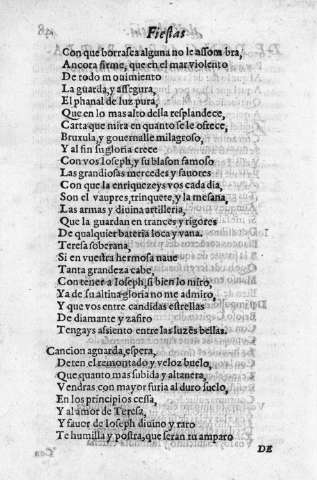 Fiestas
Con que borrasca alguna no le assombra,
Ancora firme, que en el mar violento
De todo mouimiento
La guarda, y assegura,
El phanal de luz pura,
Que en lo mas alto della resplandece,
Carta que mira en quanto se le ofrece,
Bruxula, y gouernalle milagroso,
Y al fin su gloria crece
Con vos Ioseph, y su blason famoso
Las grandiosas mercedes y fauores
Con que la enriquezeys vos cada dia,
Son el vaupres, trinquete, y la mesana,
Las armas y diuina artilleria,
Que la guardan en trances y rigores
De qualquier bateria loca y vana.
Teresa soberana,
Si en vuestra hermosa naue
Tanta grandeza cabe,
Con tener a Ioseph, si bien lo miro,
Ya de su altina gloria no me admiro,
Y que vos entre candidas estrellas
De diamante y zafiro
Tengays assiento entre las luzes bellas.
Cancion aguarda, espera,
Deten el remontado y veloz buelo,
Que quanto mas subida y altanera,
Vendras con mayor furia al duro suelo,
En los principios cessa,
Y al amor de Teresa,
Y fauor de Ioseph diuino y raro
Te humilla y postra, que seran tu amparo
DE